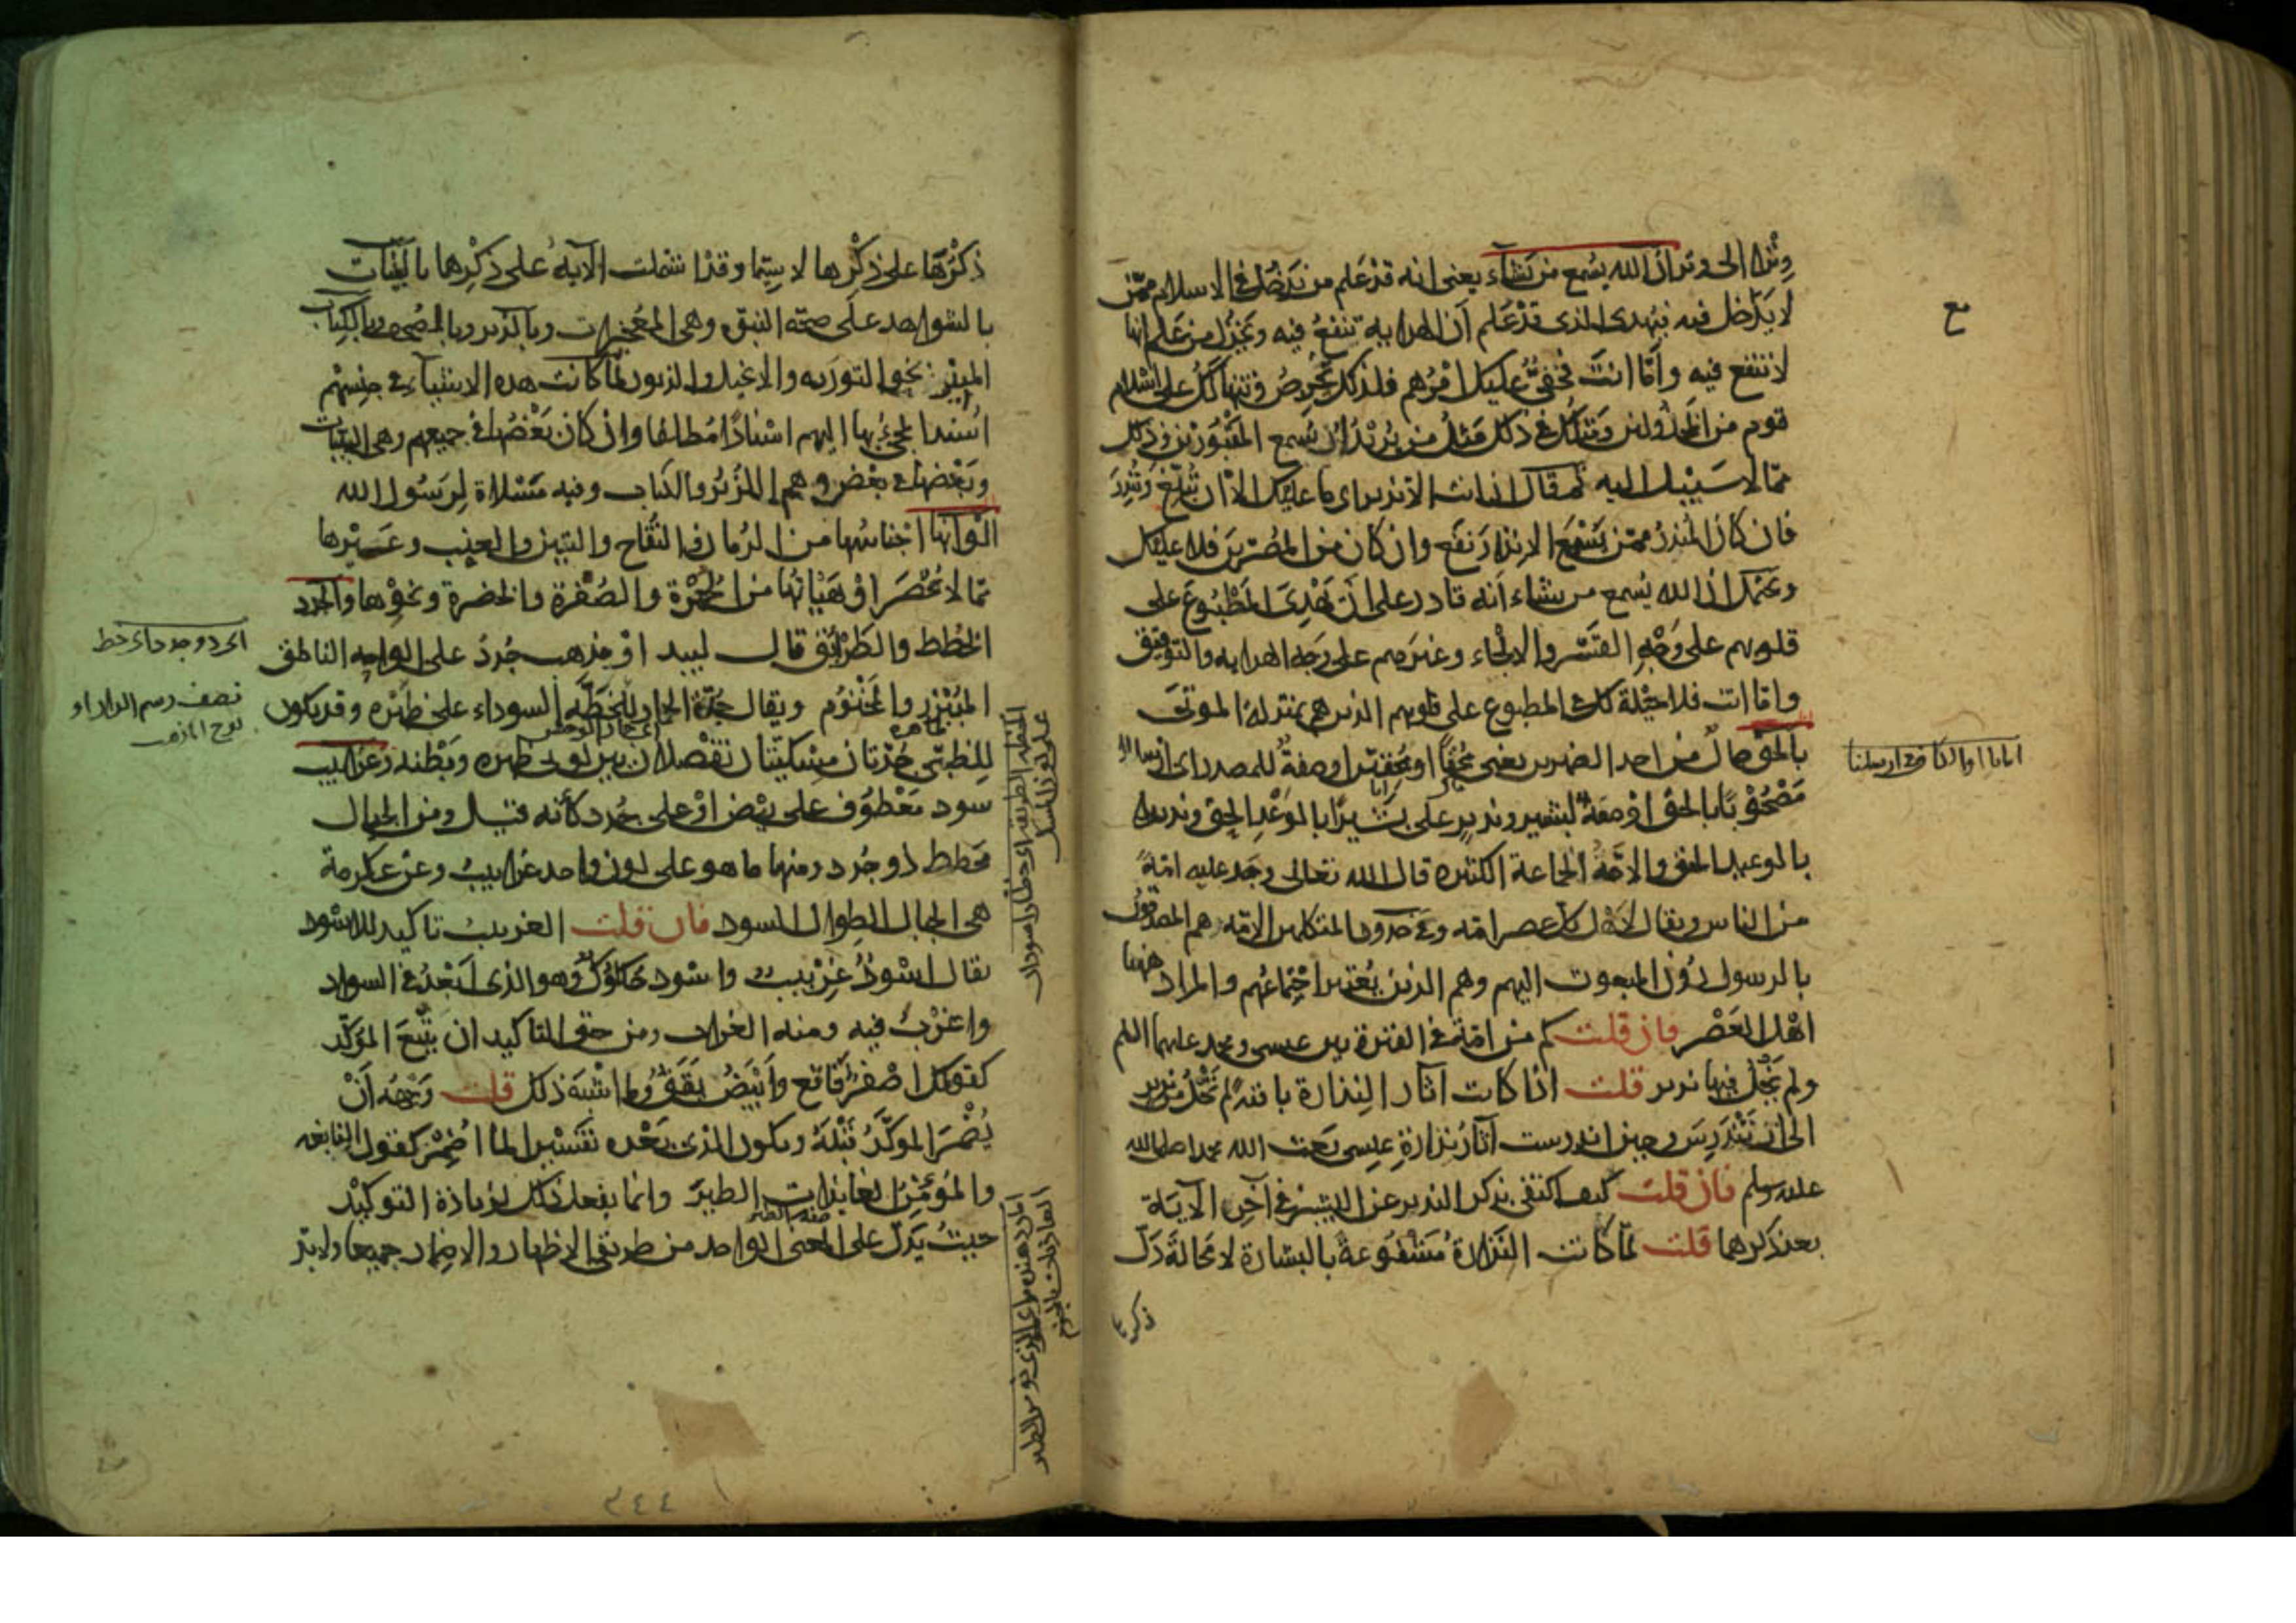 وترا الى وتر ان الله يسمع من يشاء يعنى انه قد علم من يدخل فى الاسلام ممن
لا يدخل فيه فيهدى الذى قد علم أن الهداية تنفع فيه ويخذل من علم انها
لا تنفع فيه وأما انت فخفىّ عليك امرهم فلذلك تحرص وتتهالك على اسلام
قوم من المخذولين ومثلك فى ذلك مثل من يريد ان يسمع المقبورين وذلك
مما لا سبيل اليه ثم قال ان انت الا نذير اى ما عليك الا ان تبلغ وتنذر
فان كان المنذر ممن يسمع الانذار نفع وان كان من المصرين فلا عليك
ويحتمل ان الله يسمع من يشاء انه قادر على ان يهدى المطبوع على
قلوبهم على وجه القسر والالجاء وغيرهم على وجه الهداية والتوفيق
واما انت فلا حيلة لك فى المطبوع على قلوبهم الذين هم بمنزلة الموتى
بالحق حال من احد الضميرين يعنى محقا او محقين او صفة للمصدر اى ارسالا
مصحوبا بالحق او صفة لبشير ونذير على بشيرا بالوعد الحق ونذيرا
بالوعيد الحق والامة الجماعة الكثيرة قال الله تعالى وجد عليه امة
من الناس ويقال لاهل كل عصر امة وفى حدود المتكلمين الامة هم المصدقون
بالرسول دون المبعوث اليهم وهم الذين يعتبر اجماعهم والمراد ههنا
اهل العصر فان قلت كم من امة فى الفترة بين عيسى ومحمد عليهما السلم
ولم يخل فيها نذير قلت اذا كانت آثار النذارة باقية لم تخل من نذير
الى ان تندرس وحين اندرست آثار نذارة عيسى بعث الله محمدا صلى الله
عليه وسلم فان قلت كيف اكتفى بذكر النذير عن البشير فى آخر الآية
بعد ذكرهما قلت لما كانت النذارة مشفوعة بالبشارة لا محالة دل
ذكرها
ذكرها على ذكرها لا سيما وقد اشتملت الآية على ذكرها بالبينات
بالشواهد على صحة النبوة وهى المعجزات وبالزبر وبالصحف وبالكتاب
المنير نحو التورية والانجيل والزبور لما كانت هذه الاشياء فى جنسهم
اسند المجىء بها اليهم اسنادا مطلقا وان كان بعضها فى جميعهم وهى البينات
وبعضها فى بعضهم وهى الزبر والكتاب وفيه مسلاة لرسول الله
الوانها اجناسها من الرمان والتفاح والتين والعنب وغيرها
مما لا يحصر او هيأتها من الحمرة والصفرة والخضرة ونحوها والجدد
الخطط والطرائق قال لبيد او مذهب جدد على الواحه الناطق
المبزر والمختوم ويقال جدة الحمار للخطة السوداء على ظهره وقد يكون
للظبى جدتان مسكيتان تفصلان بين لونى ظهره وبطنه وغرابيب
سود معطوف على بيض او على جدد كأنه قيل ومن الجبال
مخطط ذو جدد ومنها ما هو على لون واحد غرابيب وعن عكرمة
هى الجبال الطوال السود فان قلت الغربيب تاكيد للاسود
يقال اسود غربيب واسود حلكوك وهو الذى ابعد فى السواد
واغرب فيه ومنه الغراب ومن حق التاكيد ان يتبع المؤكد
كقولك اصفر فاقع وابيض يقق وما اشبه ذلك قلت وجهه أن
يضمر المؤكد قبله ويكون الذى بعده تفسيرا لما اضمر كقول النابغه
والمؤمن العائذات الطير وانما يفعل ذلك لزيادة التوكيد
حيث يدل على المعنى الواحد من طريقى الاظهار والاضمار جميعا ولا بد
٣٤٤